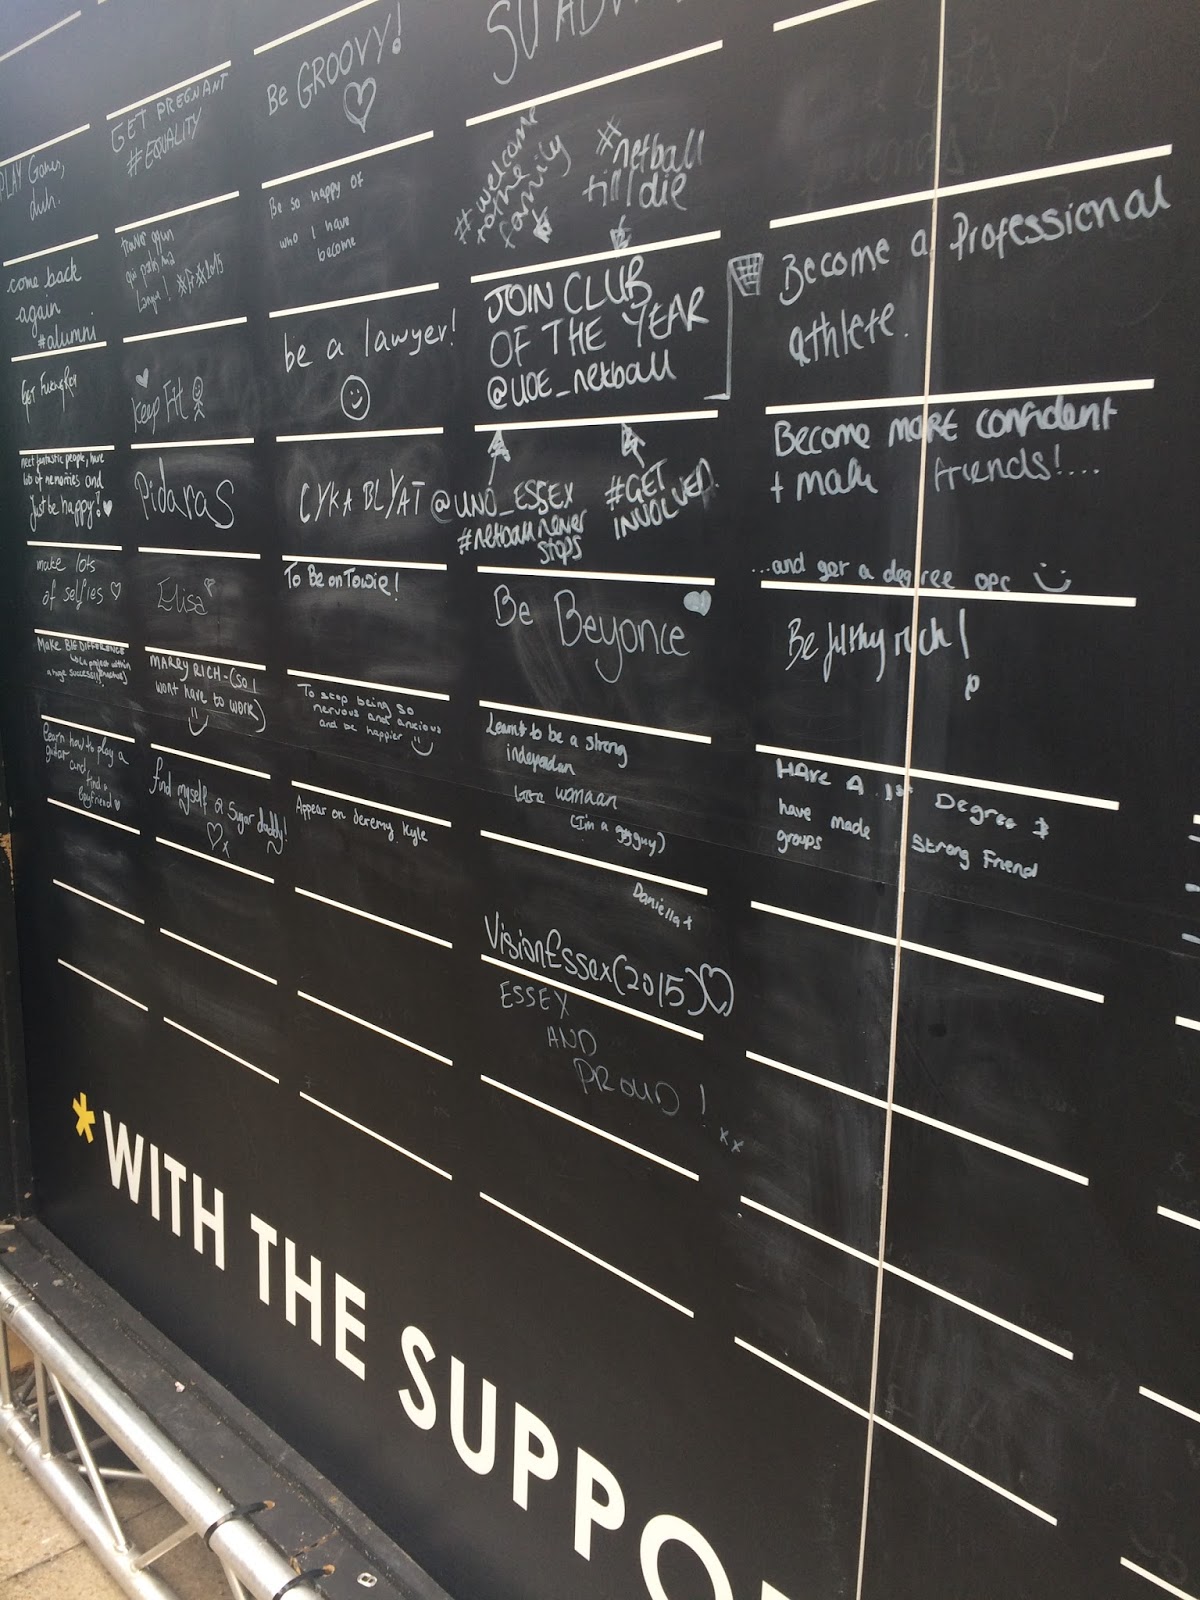 PLAY Games,
duh.
come back
again
#alumni
meet fantastic people, have
lots of memories and
Just be happy! ♥
make lots
of selfies ♡
Make BIG DIFFERENCE
a huge success
Learn how to play a
guitar and
find a
boyfriend ♥
GET PREGNANT
#EQUALITY
Keep Fit
Pidaras
Elisa
MARRY RICH - (SO I
wont have to work)
find myself a Sugar daddy!
♡x
Be GROOVY!
♡
Be so happy of
who I have
become
be a lawyer!
CYKA BLYAT
To Be on Towie!
To stop being so
nervous and anxious
and be happier
Appear on Jeremy Kyle
#welcome
to the
family
#netball
till I die
JOIN CLUB
OF THE YEAR
@UOE_netball
@UNO_ESSEX
#netball never
stops
#GET
INVOLVED.
Be Beyonce
Learnt to be a strong
independan
womaan
(I'm a guy)
Daniella x
VisionEssex(2015)♡
ESSEX
AND
PROUD!
xx
Become a Professional
athlete.
Become more confident
+ make friends!....
...and get a degree ofc
Be filthy rich!
HAVE A 1st Degree &
have made strong Friend
groups
*WITH THE SUPPO